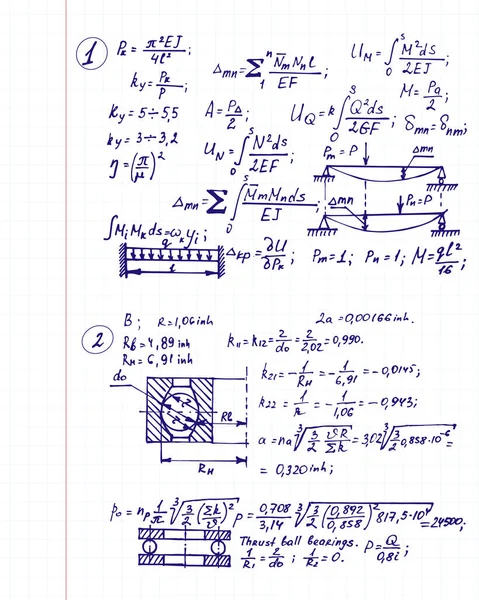 1
Pк = π²EJ / 4l² ;
kу = Pк / P ;
Kу = 5 ÷ 5,5
kу = 3 ÷ 3,2
η = (π/μ)²
Δmn = Σ₁ⁿ N̄m Nn l / EF ;
A = PΔ / 2 ;
U_N = ∫₀ˢ N²ds / 2EF ;
U_M = ∫₀ˢ M²ds / 2EJ ;
M = Pa / 2 ;
U_Q = k ∫₀ˢ Q²ds / 2GF ; δmn = δnm ;
Pm = P Δmn
Δmn = Σ ∫₀ˢ M̄m Mn ds / EJ ;
Δmn Pn = P
∫ Mi Mk ds = ωк yi ;
q
l
Δкр = ∂U / ∂Pк ; Pm = 1 ; Pn = 1 ; M = ql² / 16 ;
2
B ; R = 1,06 inh 2a = 0,00166 inh.
Rв = 4,89 inh
Rн = 6,91 inh
k₁₁ = k₁₂ = 2/do = 2/2,02 = 0,990.
k₂₁ = - 1/Rн = - 1/6,91 = - 0,0145 ;
k₂₂ = - 1/R = - 1/1,06 = - 0,943 ;
do
Rв
Rн
a = na ∛(3/2 ϑR/Σk) = 3,02 ∛(3/2 0,858·10⁻⁶) =
= 0,320 inh ;
po = np 1/π ∛(3/2 (Σk/ϑ)² P) = 0,708/3,14 ∛(3/2 (0,892/0,858)² 817,5·10⁴) = 24500 ;
Thrust ball bearings.
1/R₁ = 2/do ; 1/R₂ = 0. P = Q / 0,8i ;